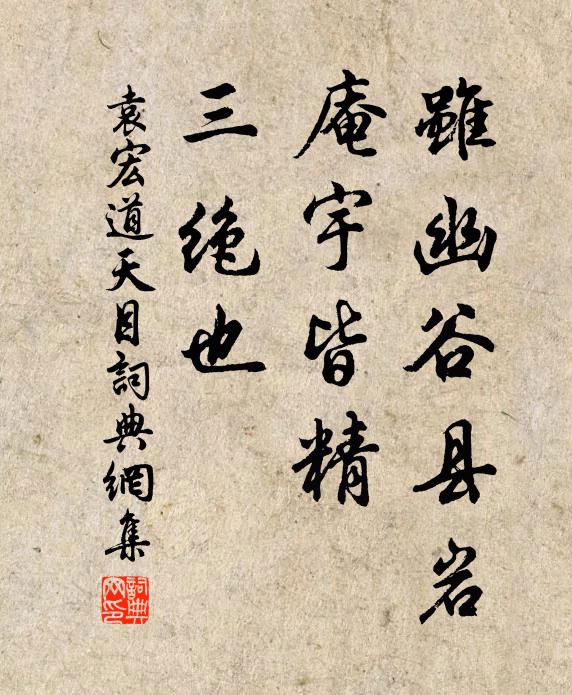 雖幽谷县岩
庵宇皆精
三绝也
袁宏道天目詞典網集
詞典網印